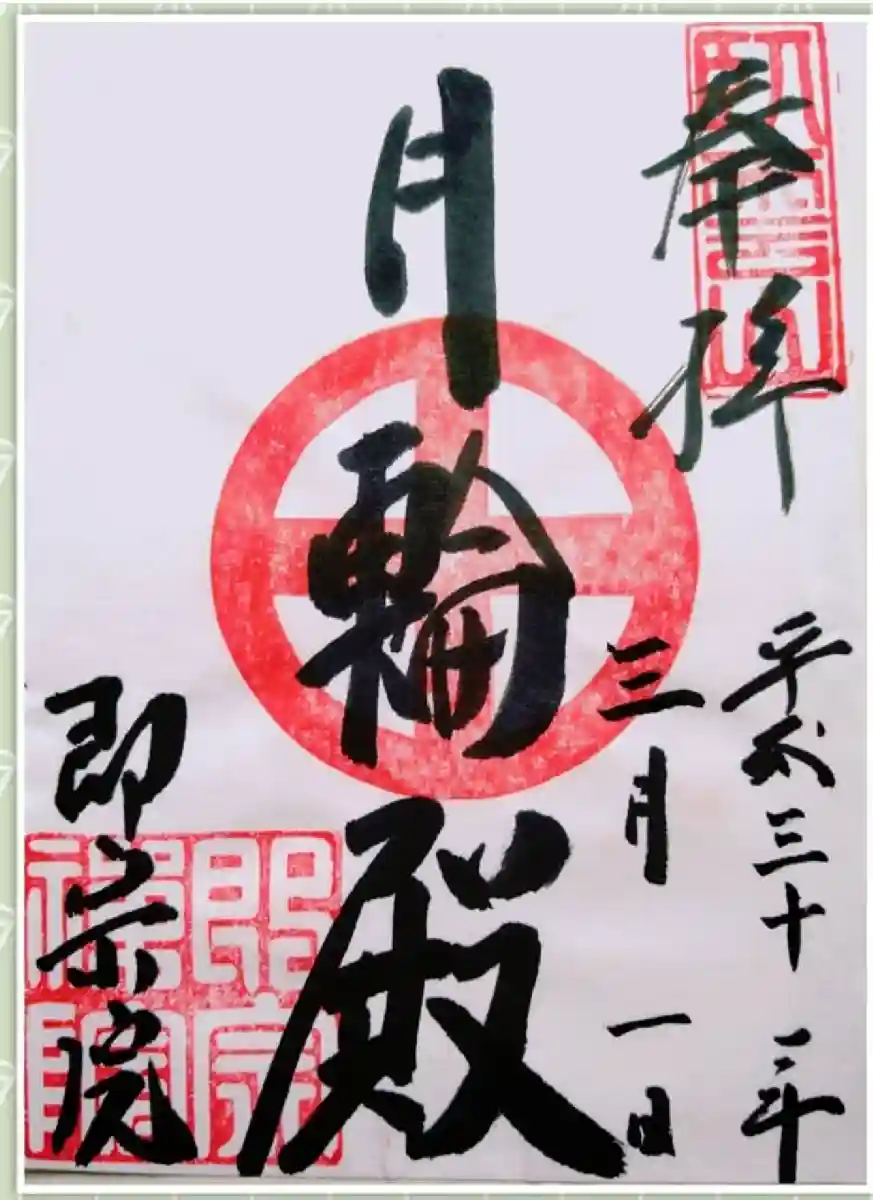 奉拝
平成三十一年
三月一日
月輪殿
即宗院
即宗
禅院